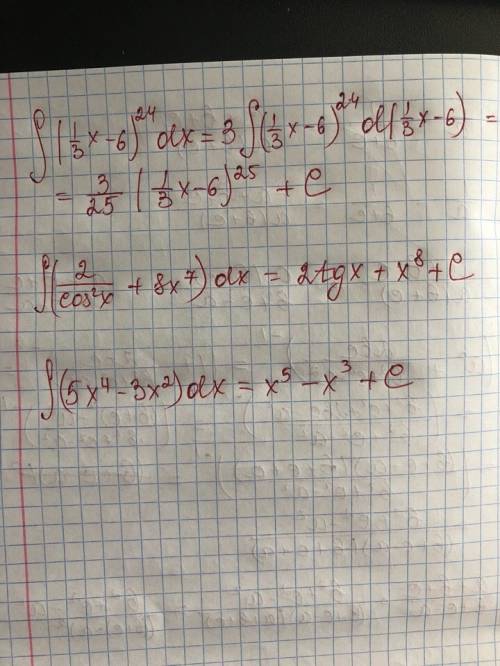 ∫(1/3 x − 6)^24 dx = 3 ∫(1/3 x − 6)^24 d(1/3 x − 6) =
= 3/25 (1/3 x − 6)^25 + C
∫(2/cos²x + 8x^7) dx = 2tgx + x^8 + C
∫(5x^4 − 3x^2) dx = x^5 − x^3 + C